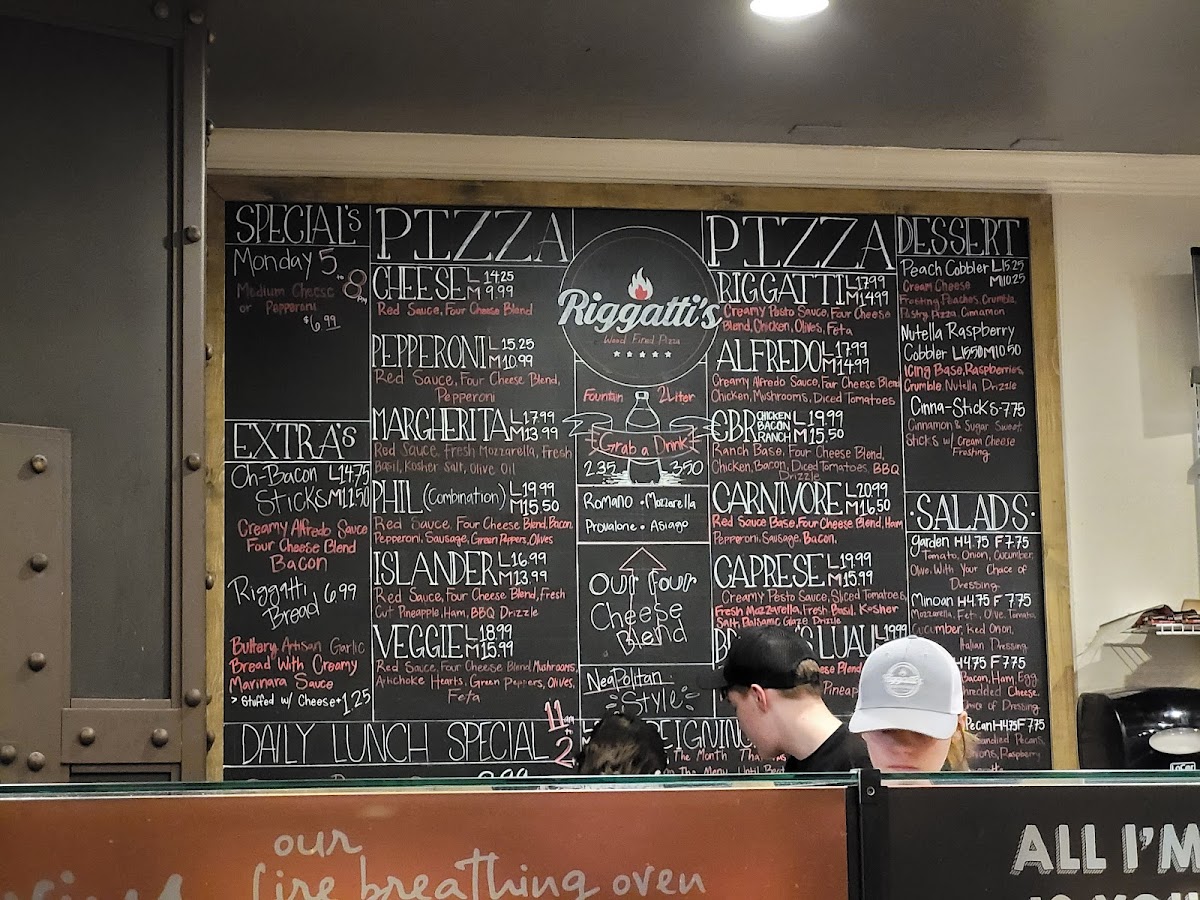 SPECIAL'S
Monday 5 to 8 pm
Medium Cheese
or Pepperoni
$6.99
EXTRA'S
Oh-Bacon L 14.75
Sticks M 11.50
Creamy Alfredo Sauce
Four Cheese Blend
Bacon
Riggatti 6.99
Bread
Buttery Artisan Garlic
Bread With Creamy
Marinara Sauce
> Stuffed w/ Cheese + 1.25
PIZZA
CHEESE L 14.25
M 9.99
Red Sauce, Four Cheese Blend
PEPPERONI L 15.25
M 10.99
Red Sauce, Four Cheese Blend,
Pepperoni
MARGHERITA L 17.99
M 13.99
Red Sauce, Fresh Mozzarella, Fresh
Basil, Kosher Salt, Olive Oil
PHIL (Combination) L 19.99
M 15.50
Red Sauce, Four Cheese Blend, Bacon
Pepperoni, Sausage, Green Peppers, Olives
ISLANDER L 16.99
M 13.99
Red Sauce, Four Cheese Blend, Fresh
Cut Pineapple, Ham, BBQ Drizzle
VEGGIE L 18.99
M 15.99
Red Sauce, Four Cheese Blend, Mushrooms,
Artichoke Hearts, Green Peppers, Olives,
Feta
DAILY LUNCH SPECIAL 11 am to 2
Riggatti's
Wood Fired Pizza
Fountain 2 Liter
Grab a Drink
2.35 3.50
Romano • Mozzarella
Provalone • Asiago
Our Four
Cheese
Blend
Neapolitan
Style
PIZZA
RIGGATTI L 17.99
M 14.99
Creamy Pesto Sauce, Four Cheese
Blend, Chicken, Olives, Feta
ALFREDO L 17.99
M 14.99
Creamy Alfredo Sauce, Four Cheese Blend
Chicken, Mushrooms, Diced Tomatoes
CBR CHICKEN BACON RANCH L 19.99
M 15.50
Ranch Base, Four Cheese Blend,
Chicken, Bacon, Diced Tomatoes, BBQ
Drizzle
CARNIVORE L 20.99
M 16.50
Red Sauce Base, Four Cheese Blend, Ham
Pepperoni, Sausage, Bacon.
CAPRESE L 19.99
M 15.99
Creamy Pesto Sauce, Sliced Tomatoes,
Fresh Mozzarella, Fresh Basil, Kosher
Salt, Balsamic Glaze Drizzle
LUAU L 19.99
Blend
Pineapple
REIGNING
The Month
DESSERT
Peach Cobbler L 15.25
M 10.25
Cream Cheese
Frosting, Peaches, Crumble,
Pastry, Pizza, Cinnamon
Nutella Raspberry
Cobbler L 15.50 M 10.50
Icing Base, Raspberries,
Crumble, Nutella Drizzle
Cinna-Sticks - 7.75
Cinnamon & Sugar Sweet
Sticks w/ Cream Cheese
Frosting
• SALADS •
Garden H 4.75 F 7.75
Tomato, Onion, Cucumber,
Olive, With Your Choice of
Dressing
Minoan H 4.75 F 7.75
Mozzarella, Feta, Olive, Tomato,
Cucumber, Red Onion,
Italian Dressing
H 4.75 F 7.75
Bacon, Ham, Egg
Shredded Cheese,
Choice of Dressing
Pecan H 4.75 F 7.75
Candied Pecans,
Raspberry
our
fire breathing oven
ALL I'M